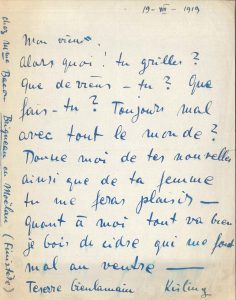 19 - VII - 1919
Mon vieux.
Alors quoi! tu grilles?
Que deviens-tu? Que
fais-tu? Toujours mal
avec tout le monde?
Donne moi de tes nouvelles
ainsi que de ta femme
tu me feras plaisir —
Quant à moi tout va bien
je bois du cidre qui me fout
mal au ventre —
Kisling
chez Mme Bacon Brigneau en Moëlan (Finistère)